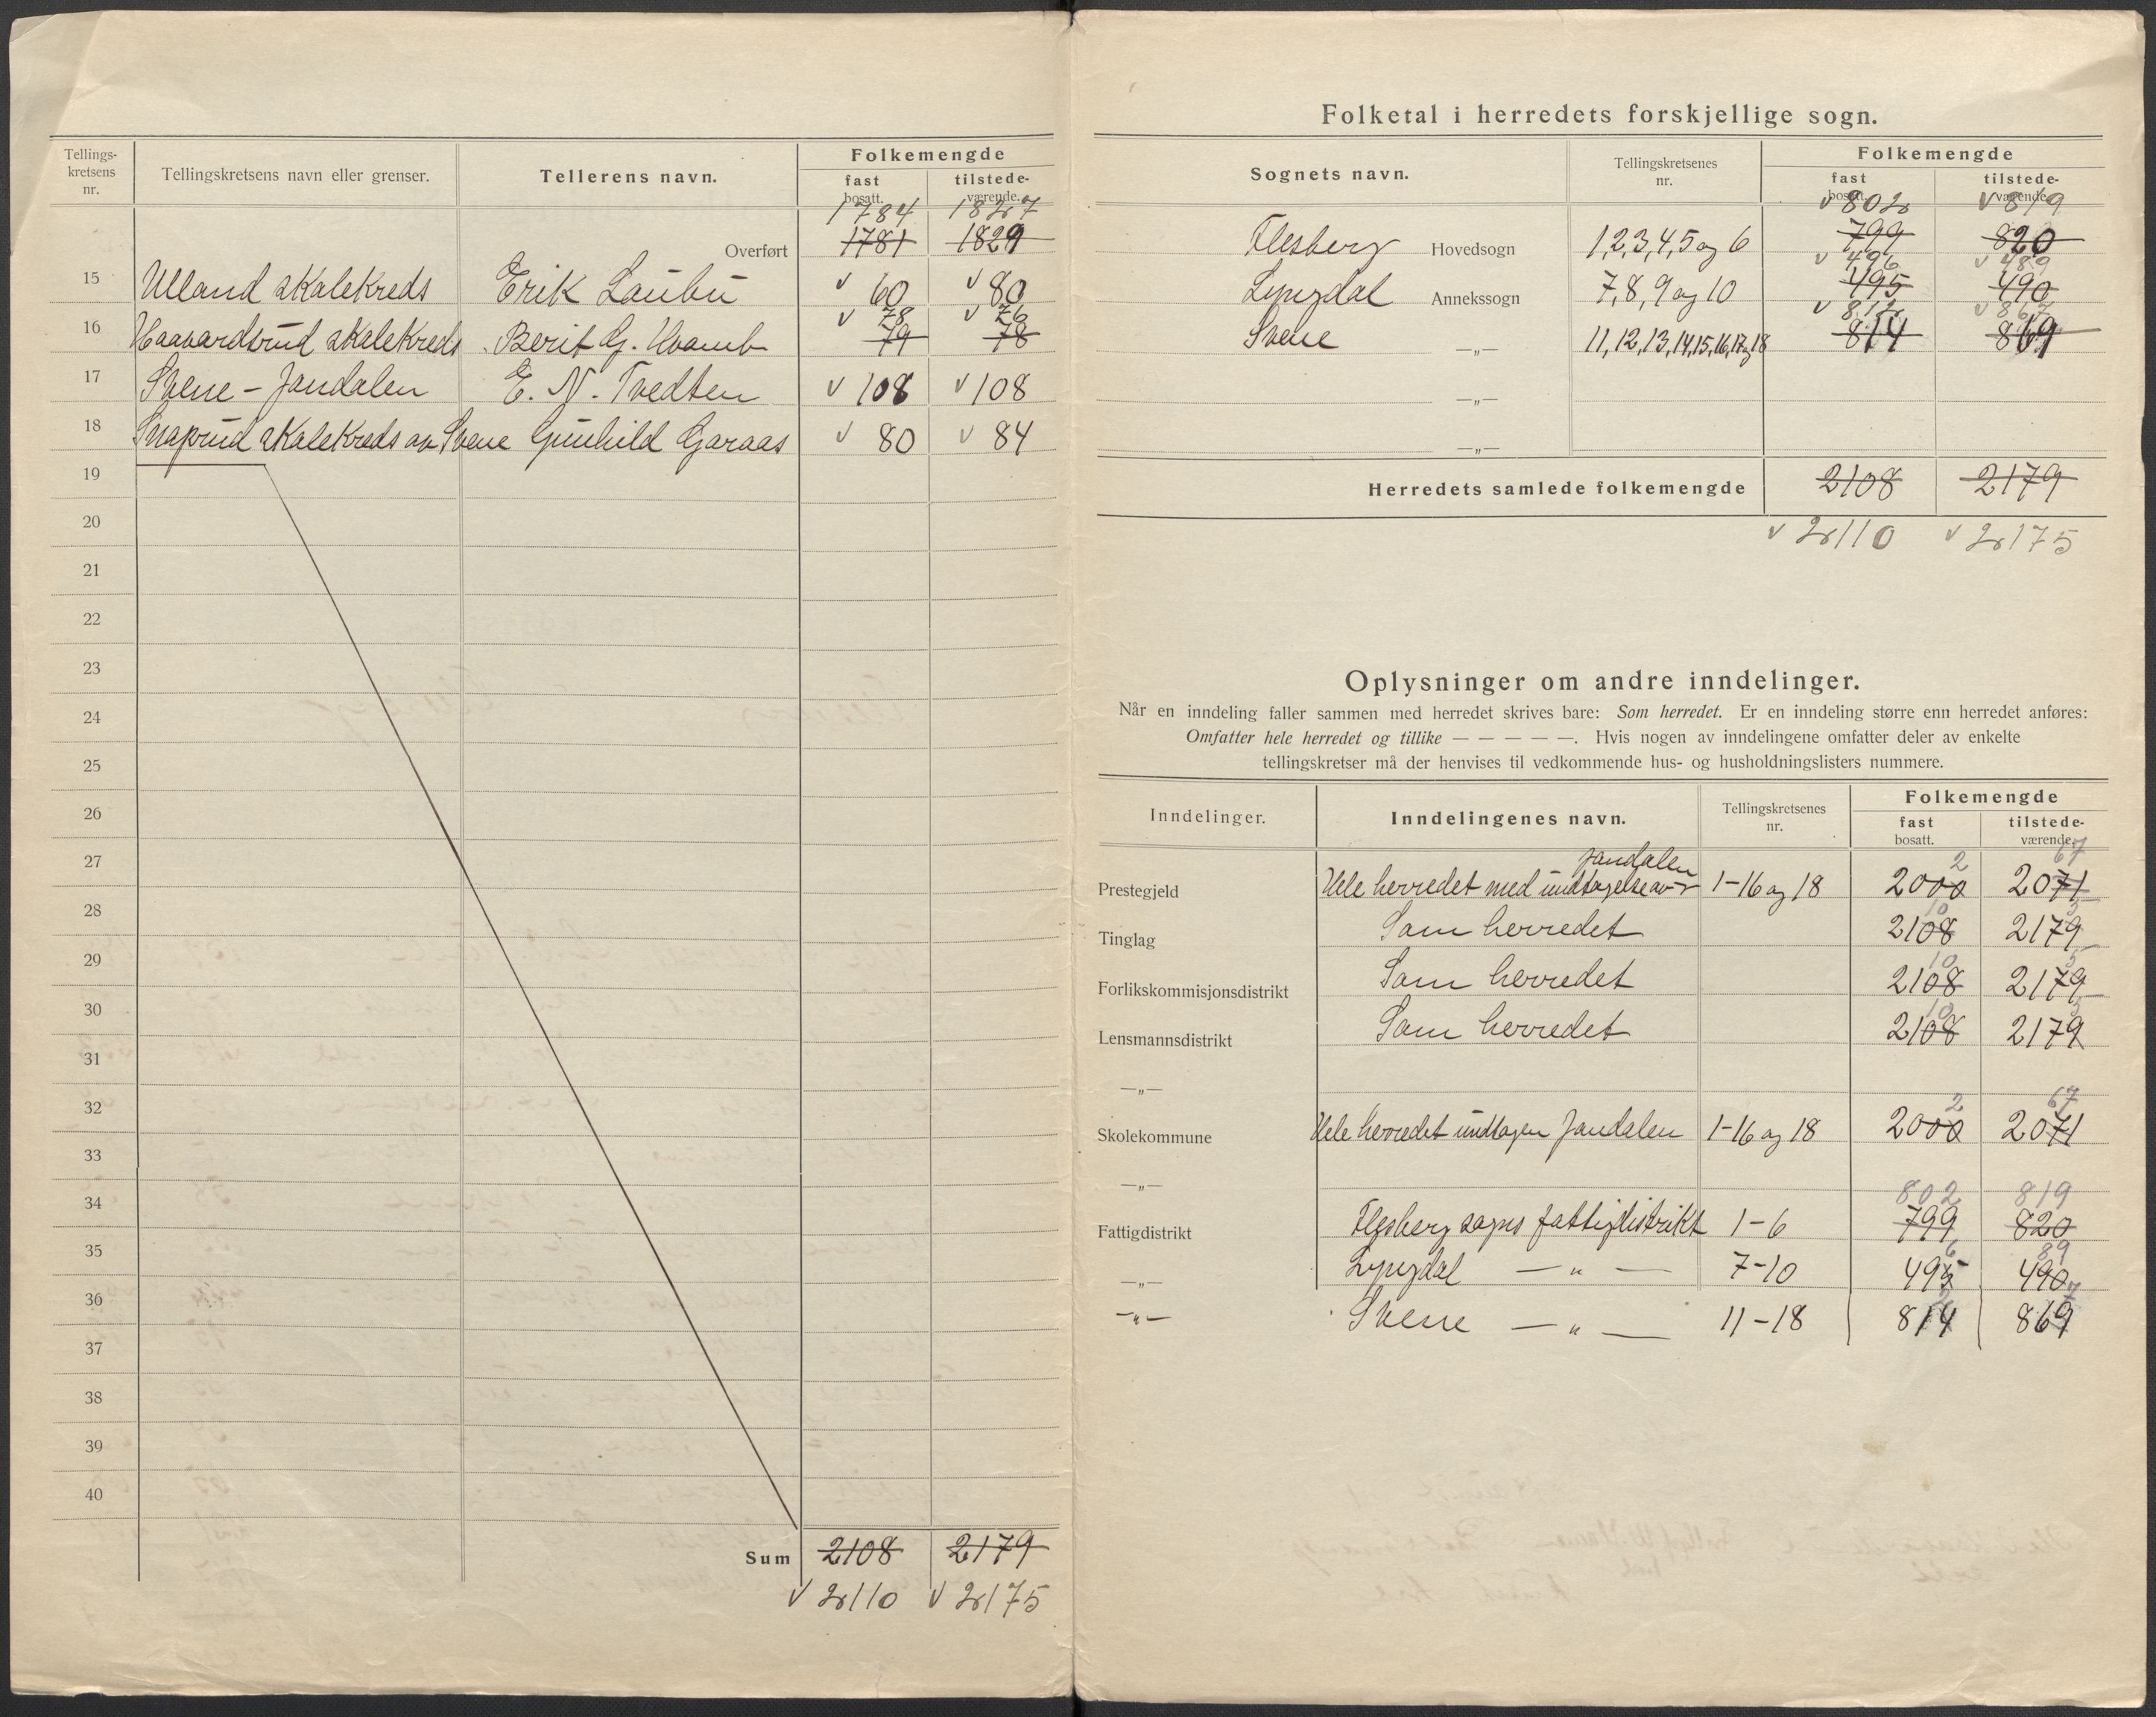 Tellings-
kretsens
nr.
Tellingskretsens navn eller grenser.
Tellerens navn.
Folkemengde
fast
bosatt.
tilstede-
værende.
1784 1827
Overført 1781 1829
15 Ulland skolekreds Erik Laubu v 60 v 80
78 76
16 Haavardsrud skolekreds Berit G. Hvamb v 79 v 78
17 Svene - Jondalen E. N. Tvedten v 108 v 108
18 Snaprud skolekreds av Svene Gunhild Garaas v 80 v 84
19
20
21
22
23
24
25
26
27
28
29
30
31
32
33
34
35
36
37
38
39
40
Sum 2108 2179
v 2110 v 2175
Folketal i herredets forskjellige sogn.
Sognets navn.
Tellingskretsenes
nr.
Folkemengde
fast
bosatt.
tilstede-
værende.
v 802 v 819
Flesberg Hovedsogn 1,2,3,4,5 og 6 799 820
v 496 v 489
Lyngdal Annekssogn 7,8,9 og 10 495 490
v 812 v 867
Svene —„— 11,12,13,14,15,16,17 og 18 814 869
—„—
—„—
Herredets samlede folkemengde 2108 2179
v 2110 v 2175
Oplysninger om andre inndelinger.
Når en inndeling faller sammen med herredet skrives bare: Som herredet. Er en inndeling større enn herredet anføres:
Omfatter hele herredet og tillike — — — — —. Hvis nogen av inndelingene omfatter deler av enkelte
tellingskretser må der henvises til vedkommende hus- og husholdningslisters nummere.
Inndelinger.
Inndelingenes navn.
Tellingskretsenes
nr.
Folkemengde
fast
bosatt.
tilstede-
værende.
Jondalen 2 67
Prestegjeld Hele herredet med undtagelse av 1-16 og 18 2000 2071
10 5
Tinglag Som herredet 2108 2179
10 5
Forlikskommisjonsdistrikt Som herredet 2108 2179
10 5
Lensmannsdistrikt Som herredet 2108 2179
—„—
2 67
Skolekommune Hele herredet undtagen Jondalen 1-16 og 18 2000 2071
—„—
802 819
Fattigdistrikt Flesberg sogns fattigdistrikt 1-6 799 820
6 89
—„— Lyngdal —„— 7-10 495 490
2 7
—„— Svene —„— 11-18 814 869